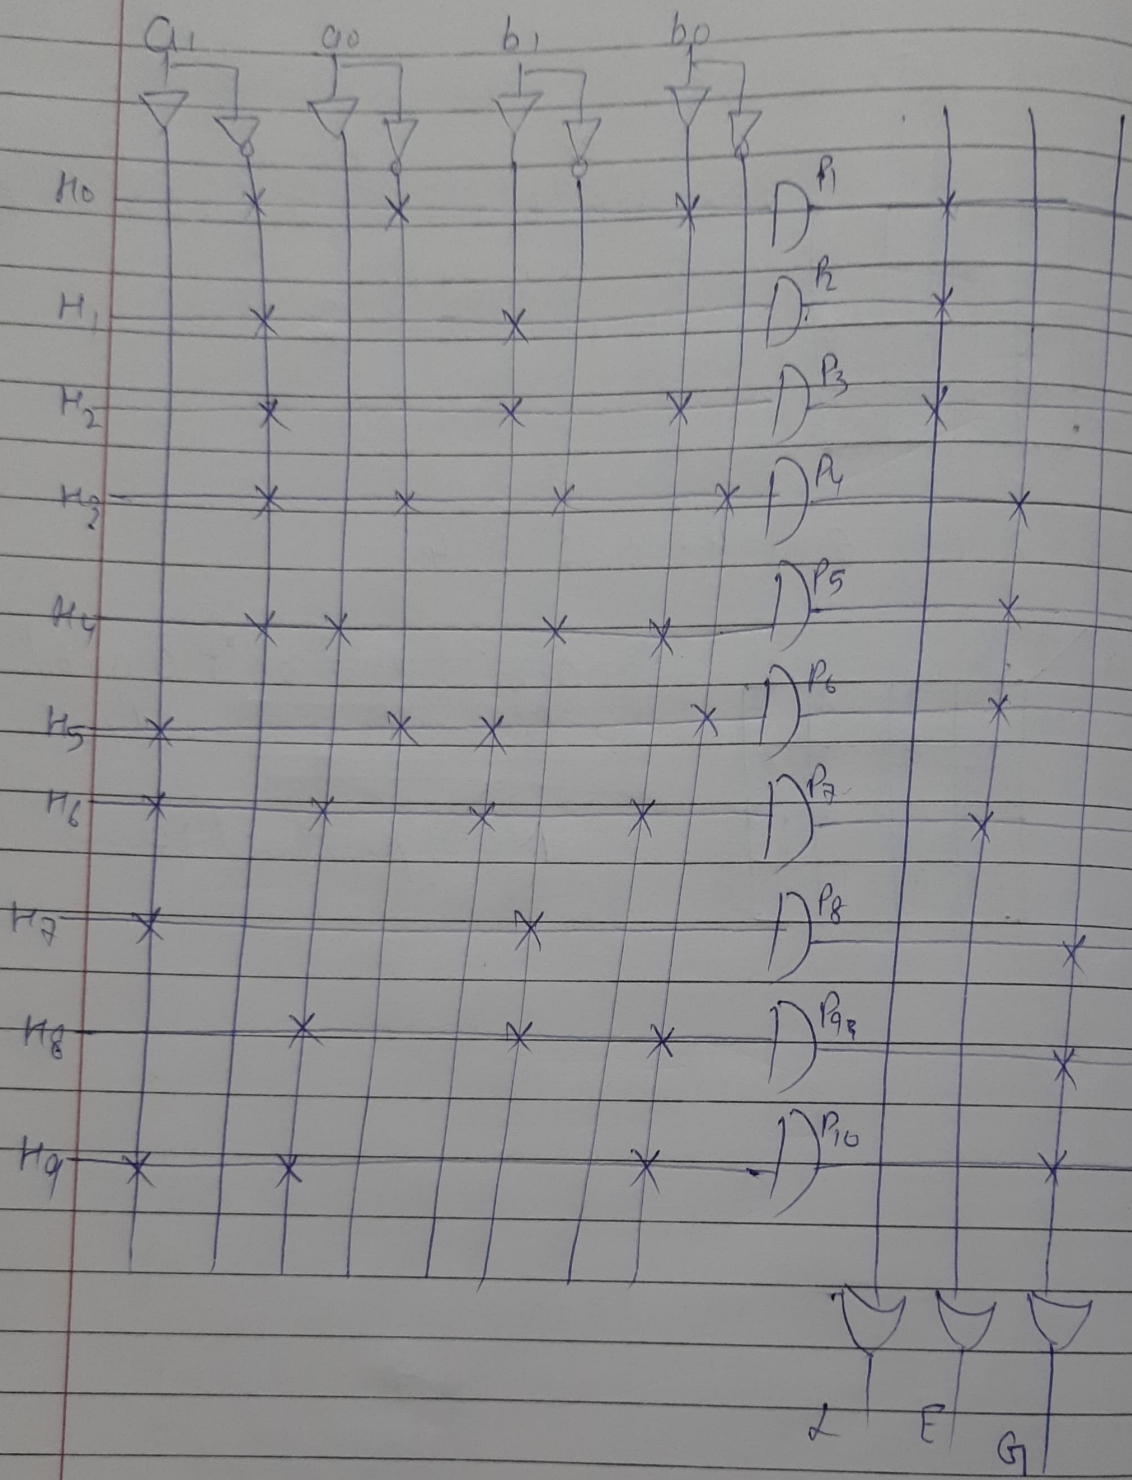 a1 a0 b1 b0
H0 P1
H1 P2
H2 P3
H3 P4
H4 P5
H5 P6
H6 P7
H7 P8
H8 P9
H9 P10
L E G